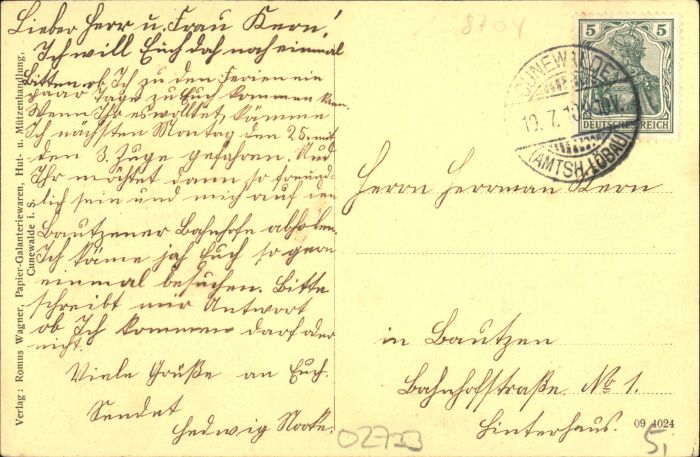 Lieber Herr u. Frau Kern!
Ich will Euch doh noch einmal
Bitten ob Ich zu den Ferien ein
paar Tage zu Euch kommen kan.
Wenn Ihr es wolltet kämme
Ich nächsten Montag den 25. mit
den 3. Zuge gefahren. Und
Ihr möchtet dann so freund-
lich sein und mich auf den
Bautzener Bahnhofe abholen.
Ich käme jah Euch so gern
einmal besuchen. Bitte
schreibt mir Antwort
ob Ich kommen darf oder
nicht.
Viele Grüße an Euch.
Sendet
Hedwig
Verlag: Romus Wagner, Papier-Galanteriewaren, Hut- u. Mützenhandlung,
Cunewalde i. S.
8704
5 5
DEUTSCHES REICH
CUNEWALDE
19.7.10
(AMTSH. LÖBAU)
Herrn Herrman Kern
in Bautzen
Bahnhofstraße No 1.
Hinterhaus.
09 4024
02733
5,